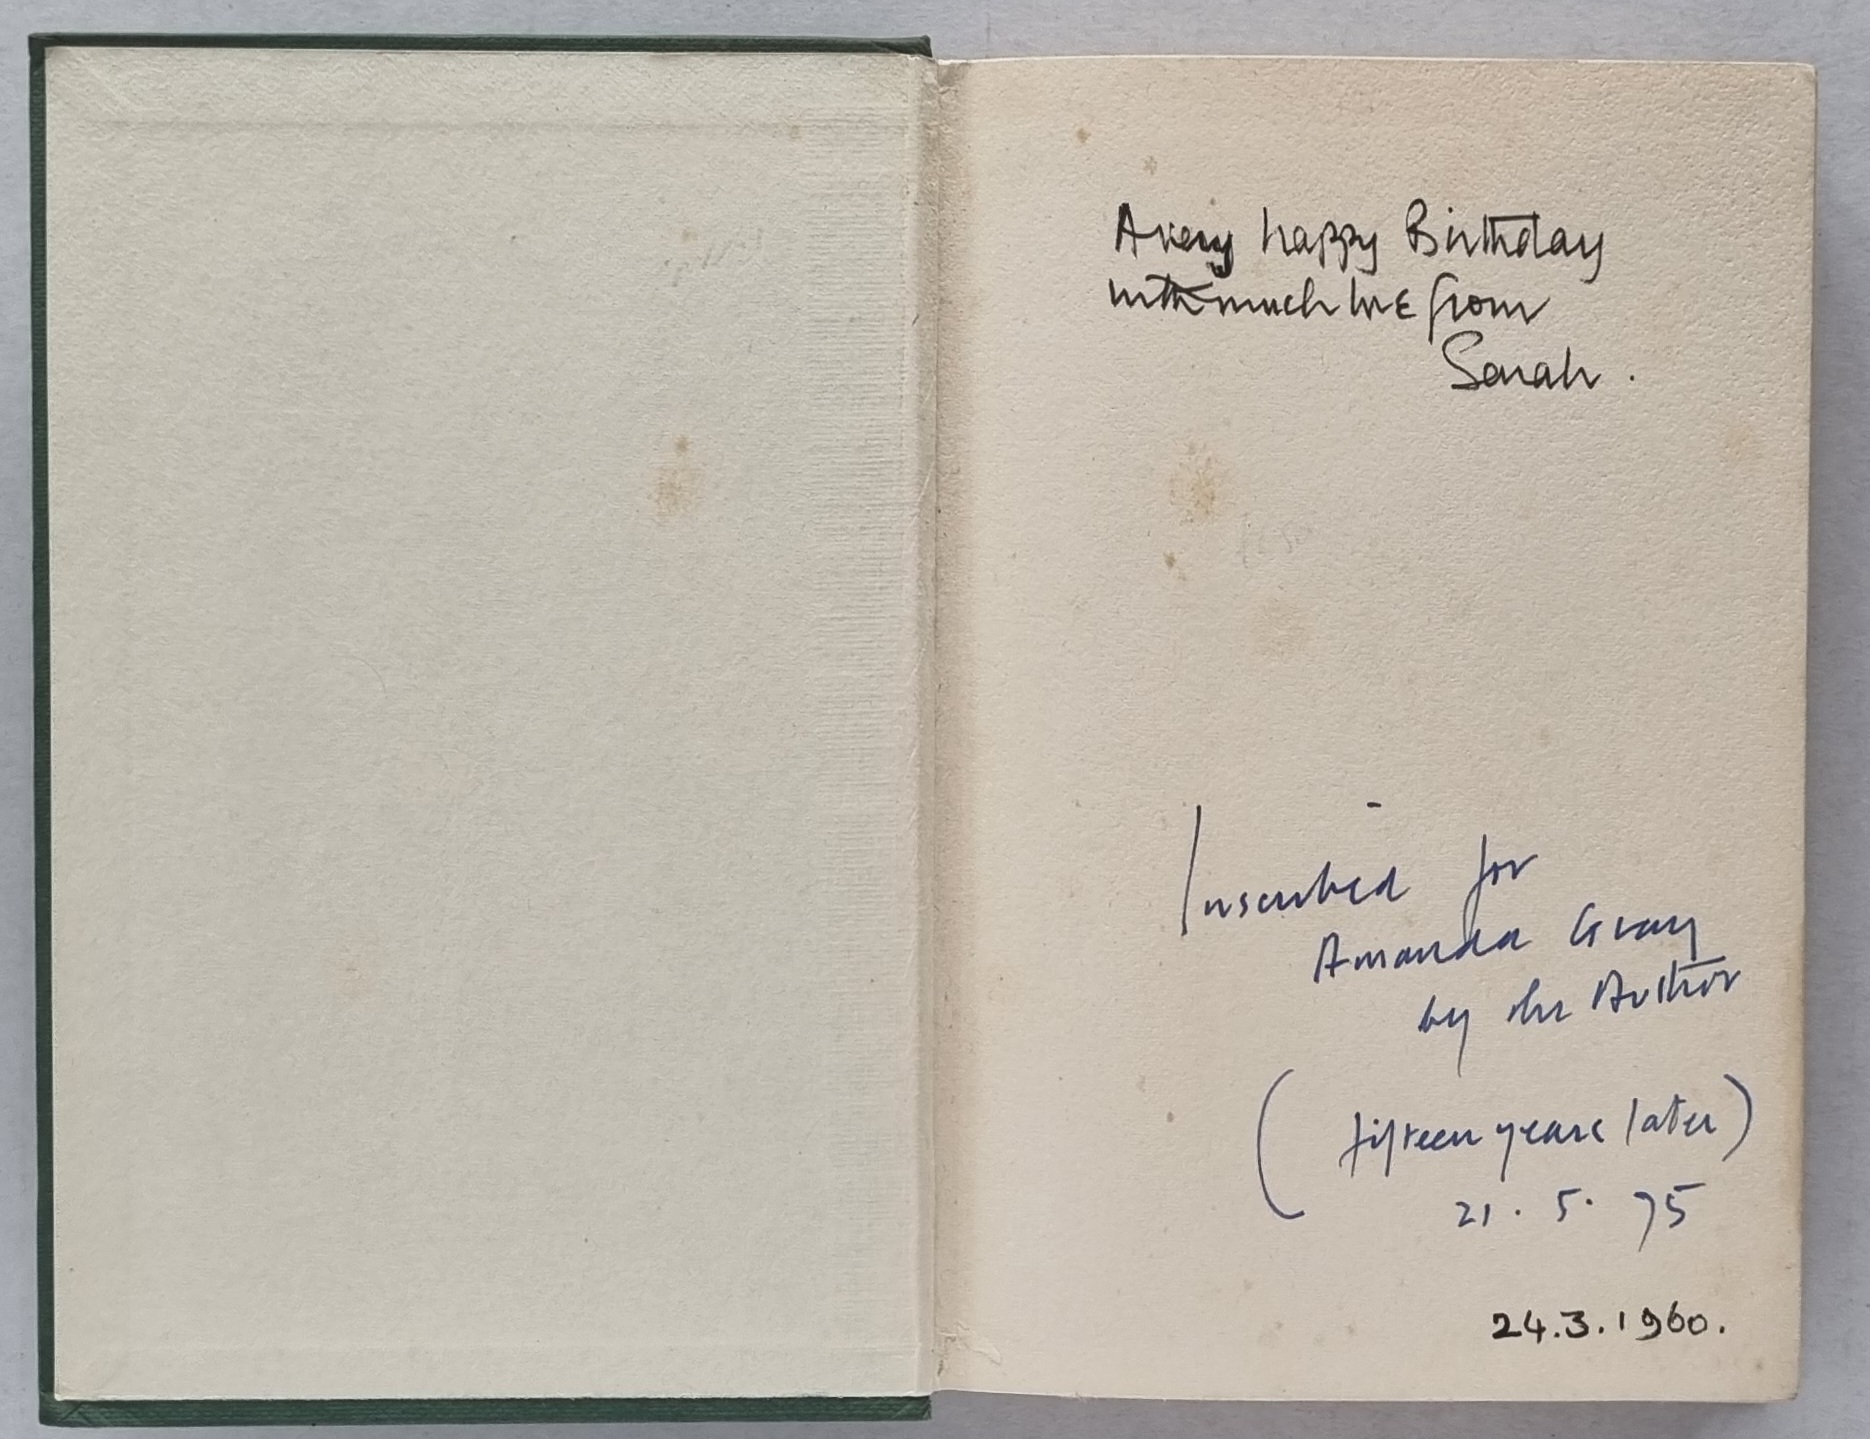 A very happy Birthday
with much love from
Sarah.
Inscribed for
Amanda Gray
by the Author
(fifteen years later)
21. 5. 75
24.3.1960.